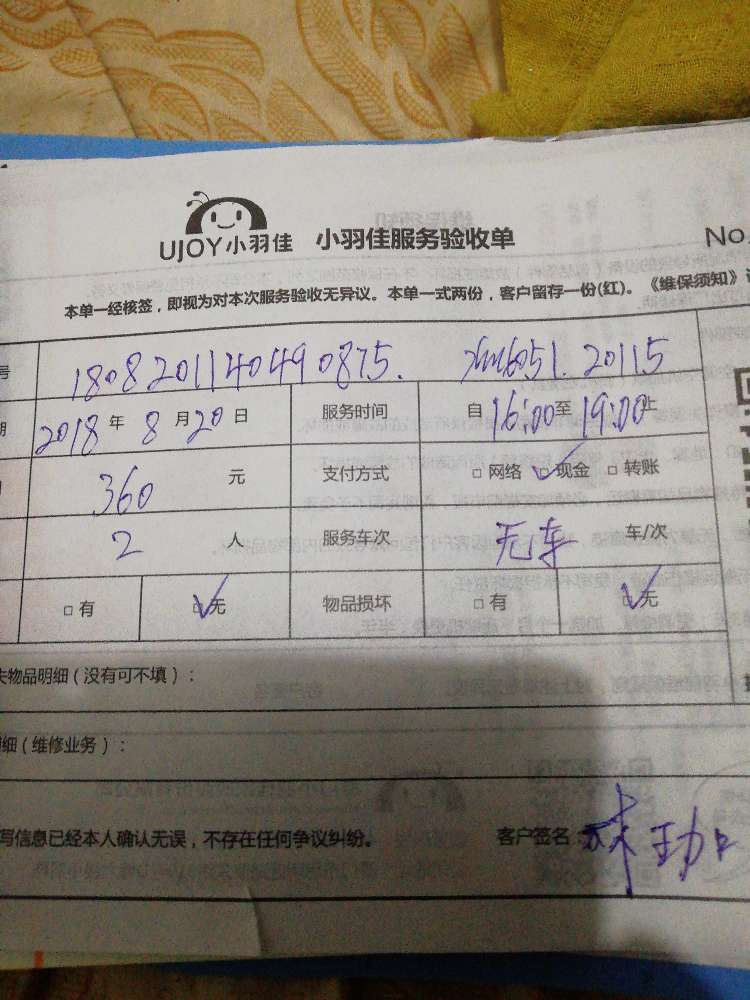 UJOY小羽佳 小羽佳服务验收单 No.
本单一经核签，即视为对本次服务验收无异议。本单一式两份，客户留存一份(红)。《维保须知》
号 180820114040490875.
期 2018 年 8 月 20 日 服务时间 自 16:00 至 19:00 止
360 元 支付方式 □ 网络 □ 现金 □ 转账
2 人 服务车次 无车 车/次
□ 有 □ 无 物品损坏 □ 有 □ 无
失物品明细（没有可不填）：
明细（维修业务）：
写信息已经本人确认无误，不存在任何争议纠纷。 客户签名：